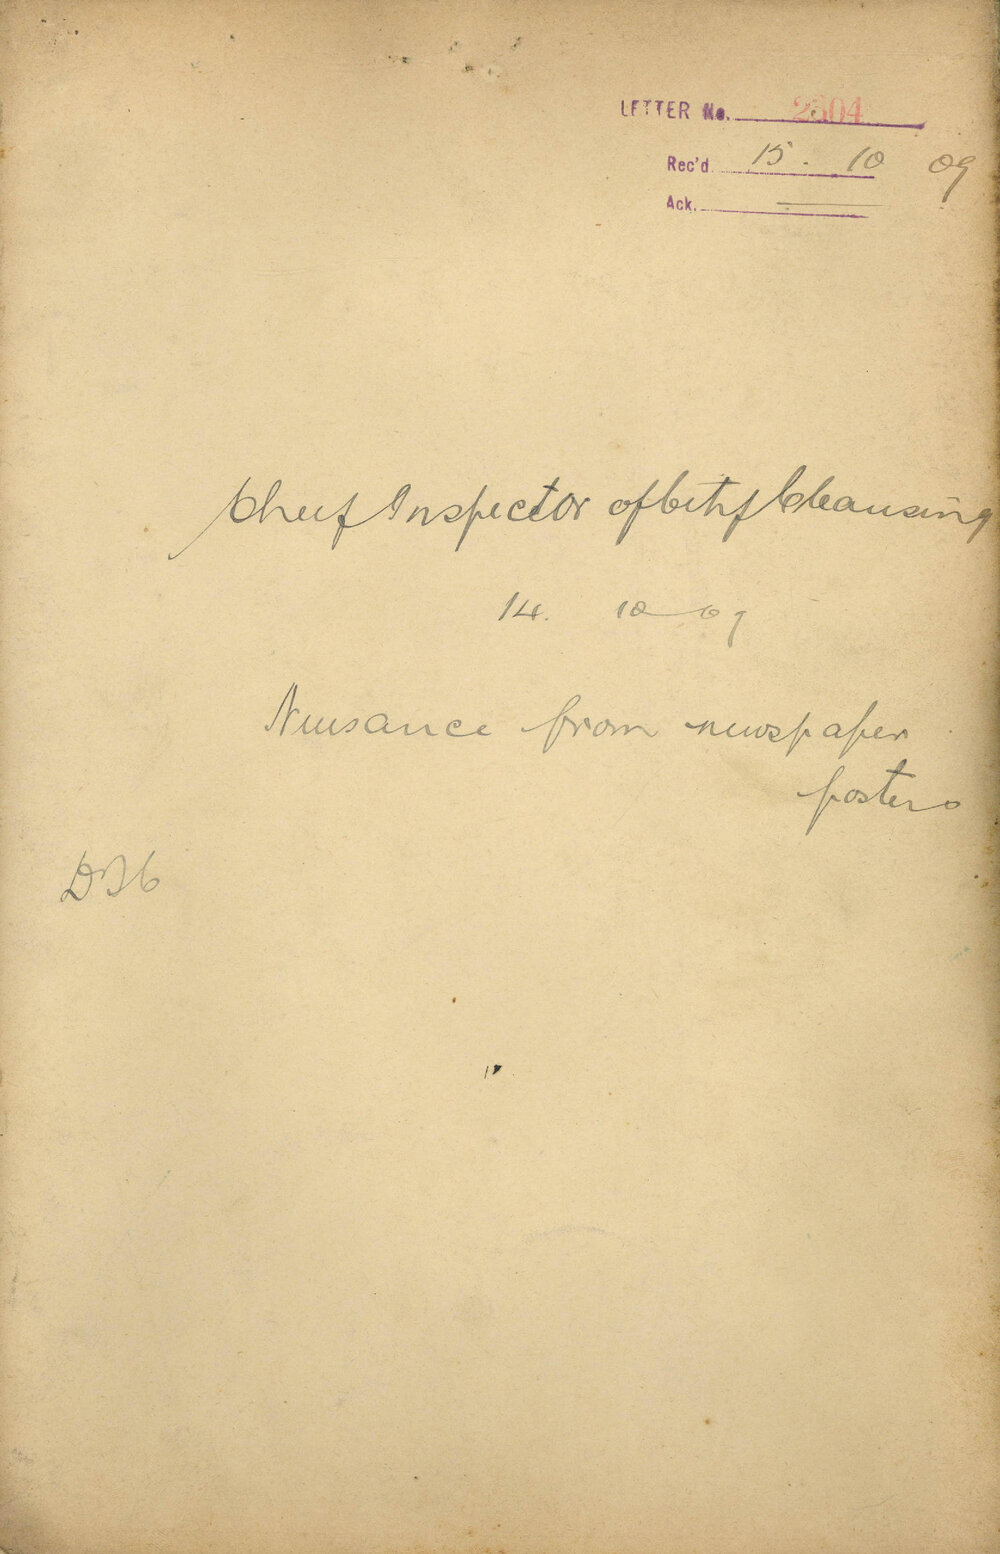 LETTER No. 2504
Rec'd. 15. 10 09
Ack.
Cheif Inspector of City Cleansing
14. 10 09
Nuisance from newspaper
posters